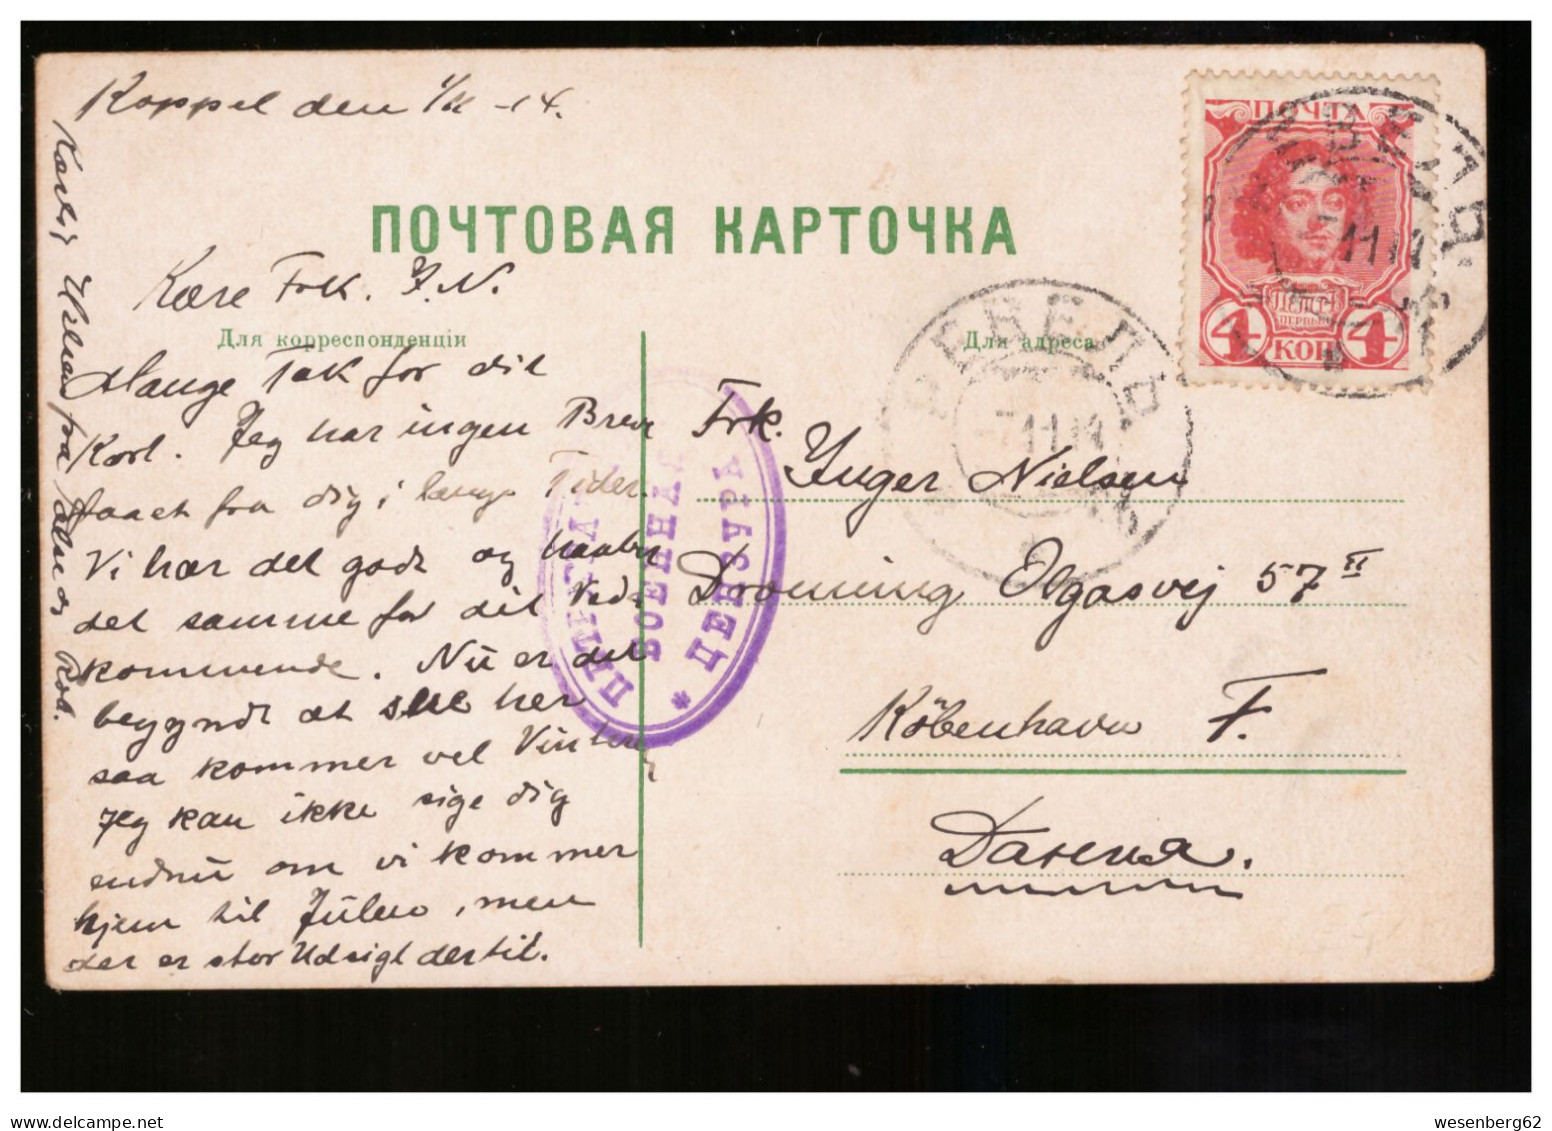 Koppel den 1/11 -14.
ПОЧТОВАЯ КАРТОЧКА
Kære Frk. I.N.
Для корреспонденціи
Mange Tak for dit
Kort. Jeg har ingen Brev
faaet fra dig i lange Tider.
Vi har det godt og haaber
det samme for dit Vedk
kommende. Nu er det
begyndt at sne her
saa kommer vel Vinteren
Jeg kan ikke sige dig
endnu om vi kommer
hjem til Julen, men
der er stor Udsigt dertil.
Kærlig Hilsen fra og
ПОЧТА
ПЕТРЪ
ПЕРВЫЙ
4 КОП 4
РЕВЕЛЬ
-7 11 14
РЕВЕЛЬ
-7 11 14
Для адреса
ВОЕННАЯ
ЦЕНЗУРА
Frk.
Inger Nielsen
Dronning Olgasvej 57 II
Köbenhavn F.
Данiя.
wesenberg62